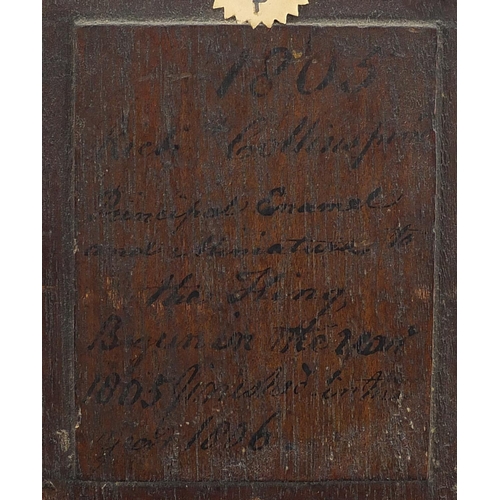 1805
Richd. Collins pinx
Principal Enamel
and Miniature to
the King,
Begun in the year
1805 finished in the
year 1806